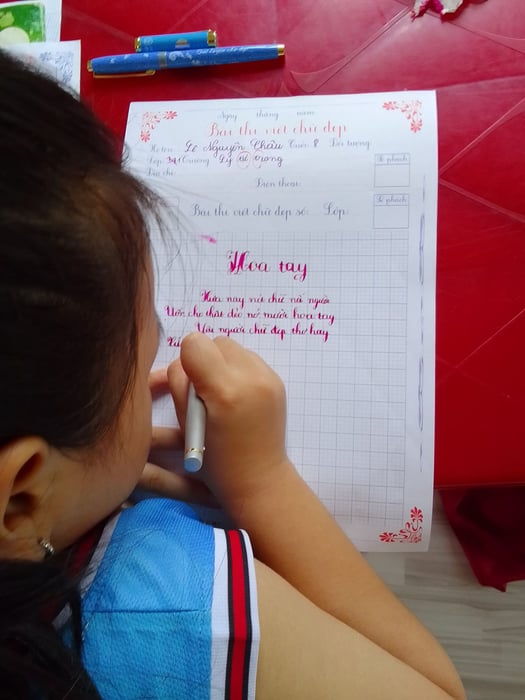 Ngày tháng năm
Bài thi viết chữ đẹp
Họ tên: Lê Nguyên Châu Tuổi: 8 Đối tượng
Lớp: 3A1 Trường Lý Tự Trọng
Địa chỉ:
Điện thoại:
Số phách
Bài thi viết chữ đẹp số: Lớp:
Số phách
Hoa tay
Xưa nay nét chữ nết người
Ước cho thật dẻo nở mười hoa tay
Yêu người chữ đẹp thơ hay